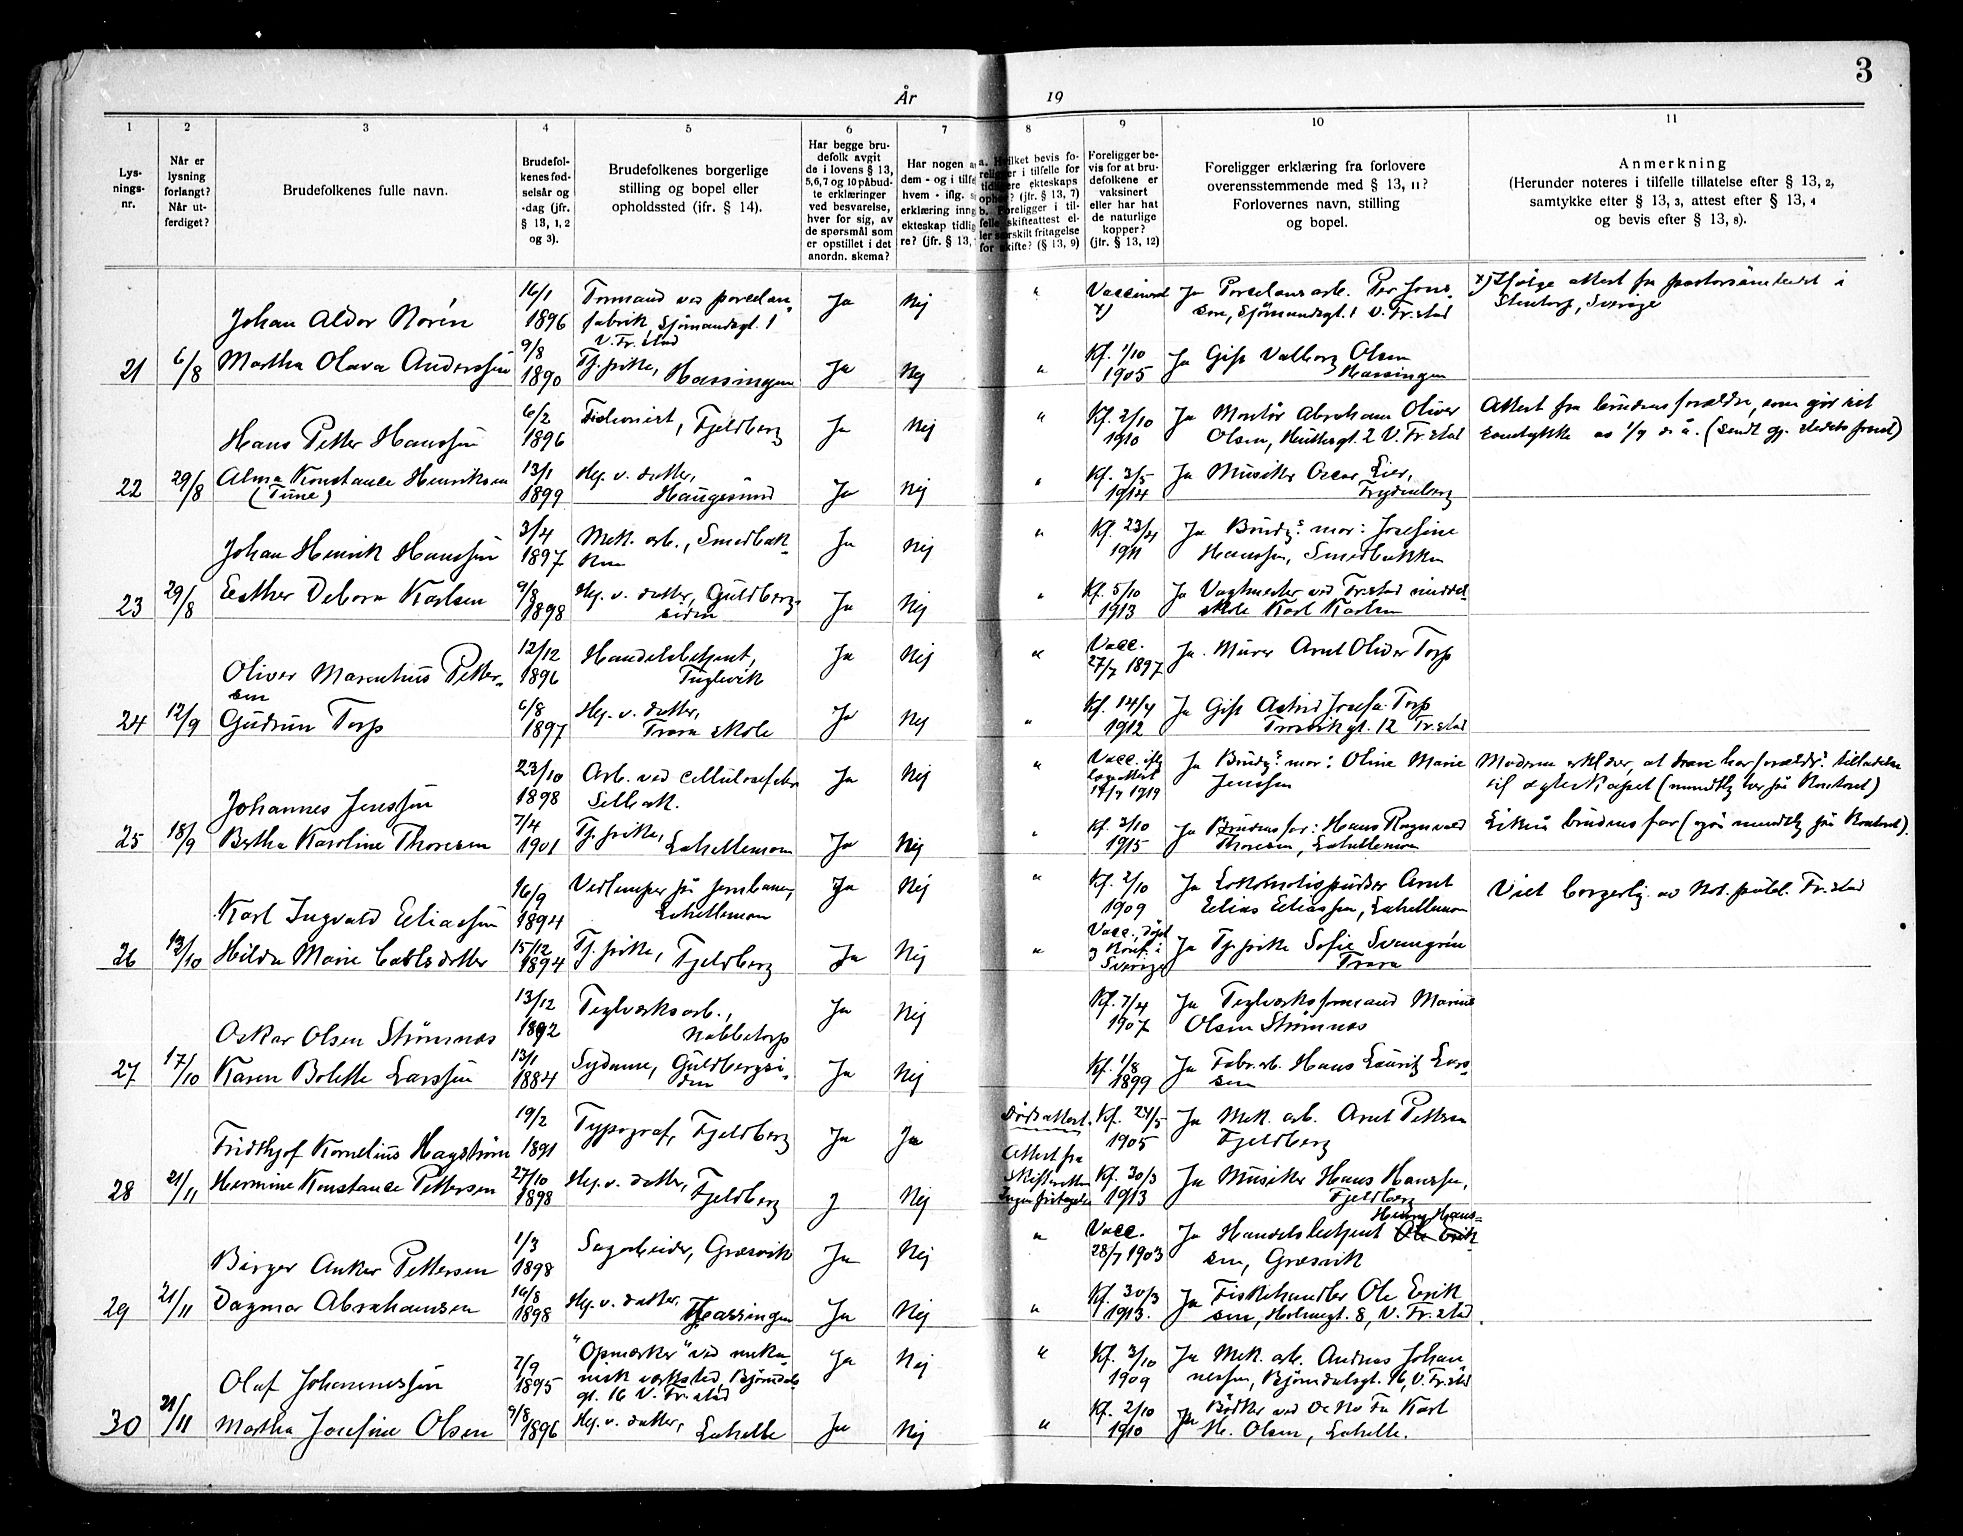 3
År 19
1 2 3 4 5 6 7 8 9 10 11
Lys-
nings-
nr.
Når er
lysning
forlangt?
Når ut-
ferdiget?
Brudefolkenes fulle navn.
Brudefol-
kenes fød-
selsår og
-dag (jfr.
§ 13, 1, 2
og 3).
Brudefolkenes borgerlige
stilling og bopel eller
opholdssted (ifr. § 14).
Har begge bru-
defolk avgit
de i lovens § 13,
5,6,7 og 10 påbud-
te erklæringer
ved besvarelse,
hver for sig, av
de spørsmål som
er opstillet i det
anordn. skema?
Har nogen a
dem - og i tilfe
hvem - iflg.
erklæring inng
ekteskap tidlig
re? (jfr. § 13,
a. Hvilket bevis fo-
religger i tilfelle for
tidligere ekteskaps
ophør? (jfr. § 13, 7)
b. Foreligger i til-
felle skifteattest el-
ler særskilt fritagelse
for skifte? (§ 13, 9)
Foreligger be-
vis for at bru-
defolkene er
vaksinert
eller har hat
de naturlige
kopper?
(jfr. § 13, 12)
Foreligger erklæring fra forlovere
overensstemmende med § 13, 11?
Forlovernes navn, stilling
og bopel.
Anmerkning
(Herunder noteres i tilfelle tillatelse efter § 13, 2,
samtykke efter § 13, 3, attest efter § 13, 4
og bevis efter § 13, 8).
Johan Aldor Norén 16/1 1896 Formand ved porcelæn-
fabrik, Sjömandsgt. 1
V. Fr.stad Ja Nej " Vaccinert x) Ja Porcelænsarb. Per Jons-
son, Sjömandsgt. 1 V. Fr.stad x) Ifølge attest fra pastorsämbedet i
Stentorp, Sverige
21 6/8 Martha Olava Anderssen 9/8 1890 Tj. pike, Hassingen Ja Nej " Kf. 1/10 1905 Ja Gift Valborg Olsen
Hassingen
Hans Petter Hanssen 6/2 1896 Fjeldberg Ja Nej " Kf. 2/10 1910 Ja Montör Abraham Oliver
Olsen, 2 V. Fr.stad Attest fra brudens forældre, som gir sit
samtykke av 1/9 d. å.
22 29/8 Alma Konstance Henriksen
(Tune) 13/1 1899 Hj. v. datter,
Haugesund Ja Nej " Kf. 3/5 1914 Ja Musiker Oscar Lier,
Trydenborg
Johan Henrik Hanssen 3/4 1897 Mek. arb., Smedbak-
ken Ja Nej " Kf. 23/4 1911 Ja Brudg.s mor: Josefine
Hanssen, Smedbakken
23 29/8 Esther Debora Karlsen 9/8 1898 Hj. v. datter, Guldbergs-
siden Ja Nej " Kf. 5/10 1913 Ja Vagtmester ved Fr.stad middel-
skole Karl Karlsen
Oliver Marentius Petter-
sen 12/12 1896 Handelsbetjent,
Fuglevik Ja Nej " Vacc.
27/7 1897 Ja. Murer Arnt Oliver Torp
24 12/9 Gudrun Torp 6/8 1897 Hj. v. datter,
Trara skole Ja Nej " Kf. 14/4 1912 Ja Gift Astrid Josefa Torp
12 Fr.stad
Johannes Jenssen 23/10 1898 Arb. ved cellulosefabr.
Selbak. Ja Nej " Vacc. iflg
1919 Ja Brudg.s mor: Oline Marie
Jenssen Moderen erklærer, at han har forældr.s tilladelse
til ægteskapet (mundtlig her på Kontoret)
25 18/9 Bertha Karoline Thoresen 7/4 1901 Tj. pike, Lahellemoen Ja Nej " Kf. 3/10 1915 Ja Brudens far: Hans Ragnvald
Thoresen, Lahellemoen Likeså brudens far (også mundtlig på Kontoret).
Karl Ingvald Eliassen 16/9 1894 Vedlemper på jernbanen,
Lahellemoen Ja Nej " Kf. 2/10 1909 Ja Lokomotivpudser Arnt
Elias Eliassen, Lahellemoen Viet borgerlig av Not. publ. Fr.stad
26 13/10 Hilda Marie Carlsdotter 15/12 1894 Tj. pike, Fjeldberg Ja Nej " Vacc., døpt
og konf. i
Sverige Ja Tj. pike Sofie Svangrén
Trara
Oskar Olsen Strömnæs 13/12 1892 Teglverksarb.,
Nabbetorp Ja Nej Kf. 7/4 1907 Ja Teglverksformand Marius
Olsen Strömnæs
27 17/10 Karen Bolette Larssen 13/1 1884 Sydame, Guldbergsi-
den Ja Nej Kf. 1/8 1899 Ja Fabr. arb. Hans Lauritz Lars-
sen
Fridthjof Kornelius Hagström 19/2 1891 Typograf, Fjeldberg Ja Ja Dødsattest. Kf. 24/5 1905 Ja Mek. arb. Arnt Pettersen
Fjeldberg
28 21/11 Hermine Konstance Pettersen 27/10 1898 Hj. v. datter,
Fjeldberg J Nej Attest fra
Skifteretten
Kf. 30/3 1913 Ja Musiker Hans Hanssen,
Fjeldberg
Birger Anker Pettersen 1/3 1898 Sagarbeider, Græsvik Ja Nej " Vacc.
28/7 1903 Ja Handelsbetjent Henry Hans-
sen, Græsvik
29 21/11 Dagmar Abrahamsen 16/8 1898 Hj. v. datter, Hassingen Ja Nej " Kf. 30/3 1913. Ja Fiskehandler Ole Erik
sen, Holmegt. 8, V. Fr.stad.
Olaf Johannessen 7/9 1895 "Opmerker" ved meka-
nisk verksted, Bjørndals-
gt. 16 V. Fr.stad Ja Nej " Kf. 3/10 1909 Ja Mek. arb. Andreas Johan-
nessen, Bjørndalsgt. 16, V. Fr.stad
30 21/11 Martha Josefine Olsen 9/8 1896 Hj. v. datter,
Lahelle Ja Nej " Kf. 2/10 1910 Ja Bödker ved De No Fa Karl
He. Olsen, Lahelle.